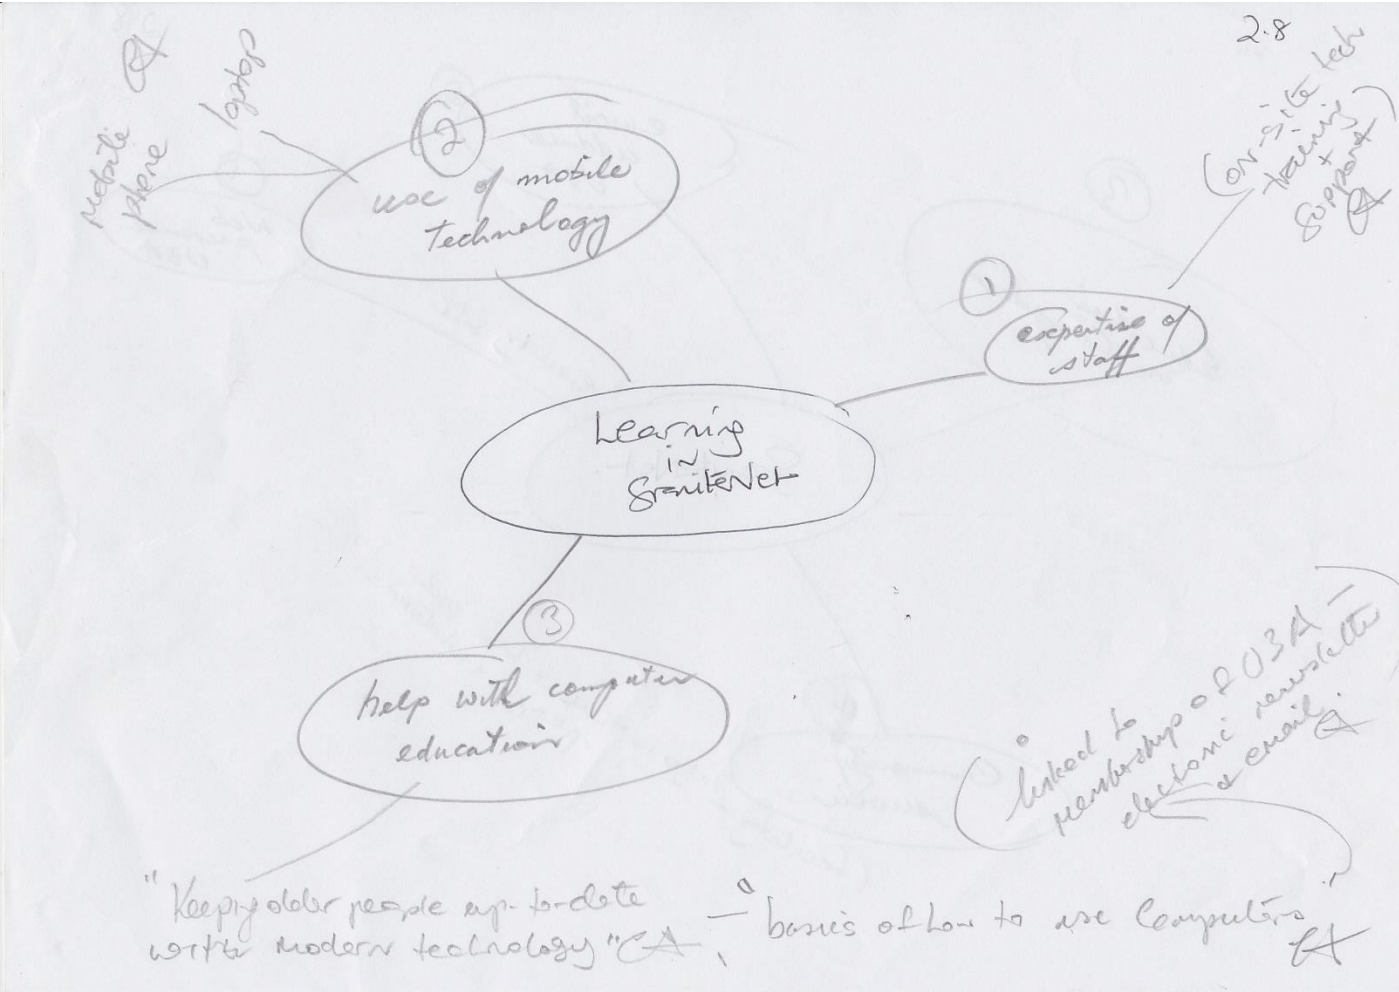 2.8
mobile
phone
laptop
2
use of mobile
technology
(on-site tech
training
+
support)
1
expertise of
staff
Learning
in
GraniteNet
3
help with computer
education
linked to
membership of U3A –
electronic newsletter
& email
"Keeping older people up-to-date
with modern technology"
– "basics of how to use computers"